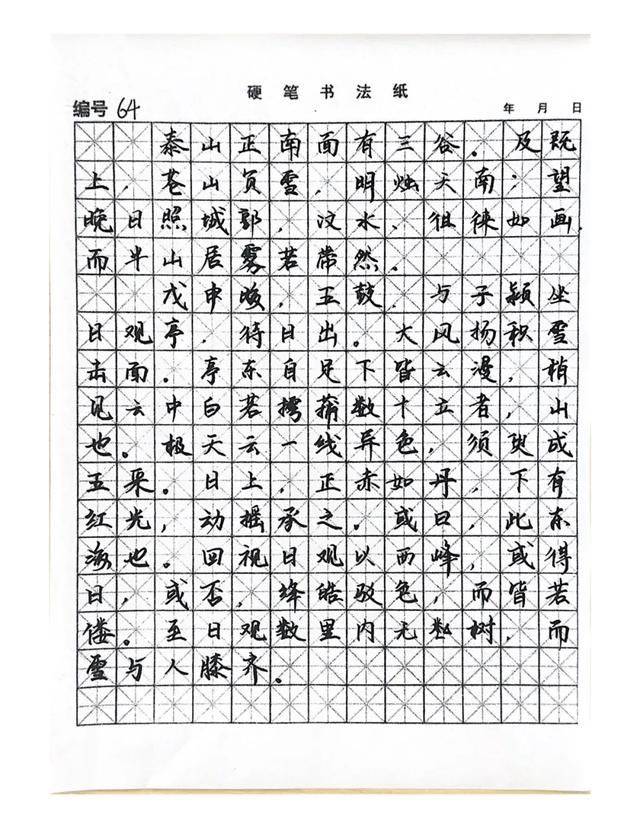 硬笔书法纸
编号 64 年 月 日
泰山正南面有三谷。及既
上，苍山负雪，明烛天南；望
晚日照城郭，汶水、徂徕如画，
而半山居雾若带然。
戊申晦，五鼓，与子颍坐
日观亭，待日出。大风扬积雪
击面。亭东自足下皆云漫，稍
见云中白若摴蒱数十立者，山
也。极天云一线异色，须臾成
五采。日上，正赤如丹，下有
红光，动摇承之。或曰，此东
海也。回视日观以西峰，或得
日，或否，绛皓驳色，而皆若
偻。至日观数里内无数树，而
雪与人膝齐。